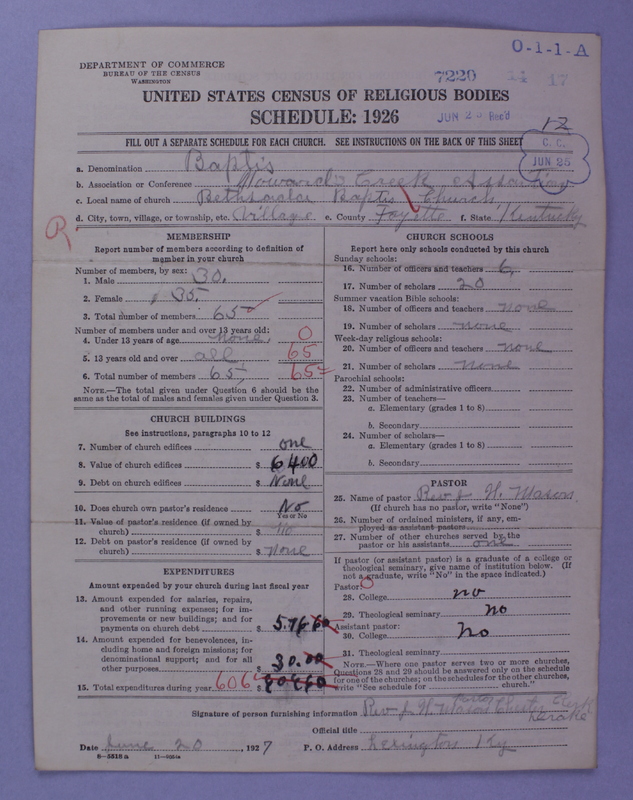 O-1-1-A
DEPARTMENT OF COMMERCE
BUREAU OF THE CENSUS
WASHINGTON
7220 14 17
UNITED STATES CENSUS OF RELIGIOUS BODIES
SCHEDULE: 1926
JUN 2 Rec'd
12
FILL OUT A SEPARATE SCHEDULE FOR EACH CHURCH. SEE INSTRUCTIONS ON THE BACK OF THIS SHEET
C. C.
JUN 25
a. Denomination Baptis
b. Association or Conference Howard's Creek
c. Local name of church Bethsada Baptis Church
d. City, town, village, or township, etc. Village e. County Fayette f. State Kentucky
R
MEMBERSHIP
Report number of members according to definition of
member in your church
Number of members, by sex:
1. Male 30.
2. Female 35.
3. Total number of members 65
Number of members under and over 13 years old:
4. Under 13 years of age none 0
5. 13 years old and over all 65
6. Total number of members 65 65
NOTE.—The total given under Question 6 should be
same as the total of males and females given under Question 3.
CHURCH BUILDINGS
See instructions, paragraphs 10 to 12
7. Number of church edifices one
8. Value of church edifices $ 6400
9. Debt on church edifices $ None
10. Does church own pastor's residence? No
Yes or No
11. Value of pastor's residence (if owned by
church) $ No
12. Debt on pastor's residence (if owned by
church) $ None
EXPENDITURES
Amount expended by your church during last fiscal year
13. Amount expended for salaries, repairs,
and other running expenses; for im-
provements or new buildings; and for
payments on church debt $ 576 60
14. Amount expended for benevolences, in-
cluding home and foreign missions; for
denominational support; and for all
other purposes $ 30.00
15. Total expenditures during year 606 $
CHURCH SCHOOLS
Report here only schools conducted by this church
Sunday schools:
16. Number of officers and teachers 6
17. Number of scholars 20
Summer vacation Bible schools:
18. Number of officers and teachers none
19. Number of scholars none
Week-day religious schools:
20. Number of officers and teachers none
21. Number of scholars none
Parochial schools:
22. Number of administrative officers
23. Number of teachers—
a. Elementary (grades 1 to 8)
b. Secondary
24. Number of scholars—
a. Elementary (grades 1 to 8)
b. Secondary
PASTOR
25. Name of pastor Rev J W. Mason
(If church has no pastor, write "None")
26. Number of ordained ministers, if any, em-
ployed as assistant pastors
27. Number of other churches served by the
pastor or his assistants one
If pastor (or assistant pastor) is a graduate of a college or
theological seminary, give name of institution below. (If
not a graduate, write "No" in the space indicated.)
Pastor: 0
28. College no
29. Theological seminary no
Assistant pastor:
30. College No
31. Theological seminary
NOTE.—Where one pastor serves two or more churches,
Questions 28 and 29 should be answered only on the schedule
for one of the churches; on the schedules for the other churches,
write "See schedule for church."
Signature of person furnishing information Rev J W Mason
Official title
Date June 20, 1927 P. O. Address Lexington Ky
8-5518 a 11-9051a